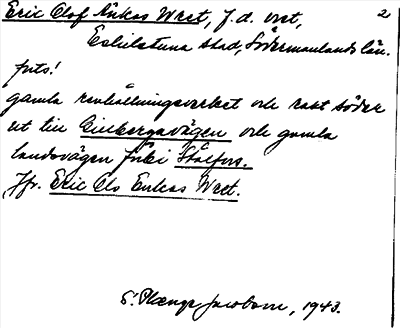 Eric Olof Enkas Wret, J.d. vret, 2
Eskilstuna stad, Södermanlands län.
forts!
gamla renhållningsverket och rakt söder
ut till Ekebergavägen och gamla
landsvägen förbi Stålfors.
Jfr. Eric Ols Enkas Wret.
Jacobson, 1943.